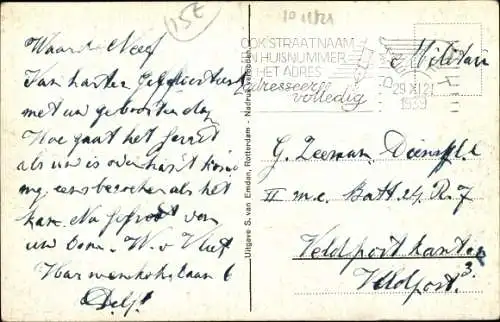 15E
10 11/21
Waarde Neef
Van harten gefeliciteerd
met uw geboortendag
Hoe gaat het Gerrit
als uw is over hart
mij eens bezoeken als het
kan. Na Gegroet van
uw Oom. W. v Vliet
laan 6
Delft
Uitgave S. van Emdan, Rotterdam - Nadruk verboden
OOK STRAATNAAM
EN HUISNUMMER
IN HET ADRES
Adresseer
volledig
29 XI 21
1939
Militair
G. Zeeman, Dienspl.
II m.c. Batt 24 R. 7
Veldpost kantoor
Veldpost. 3